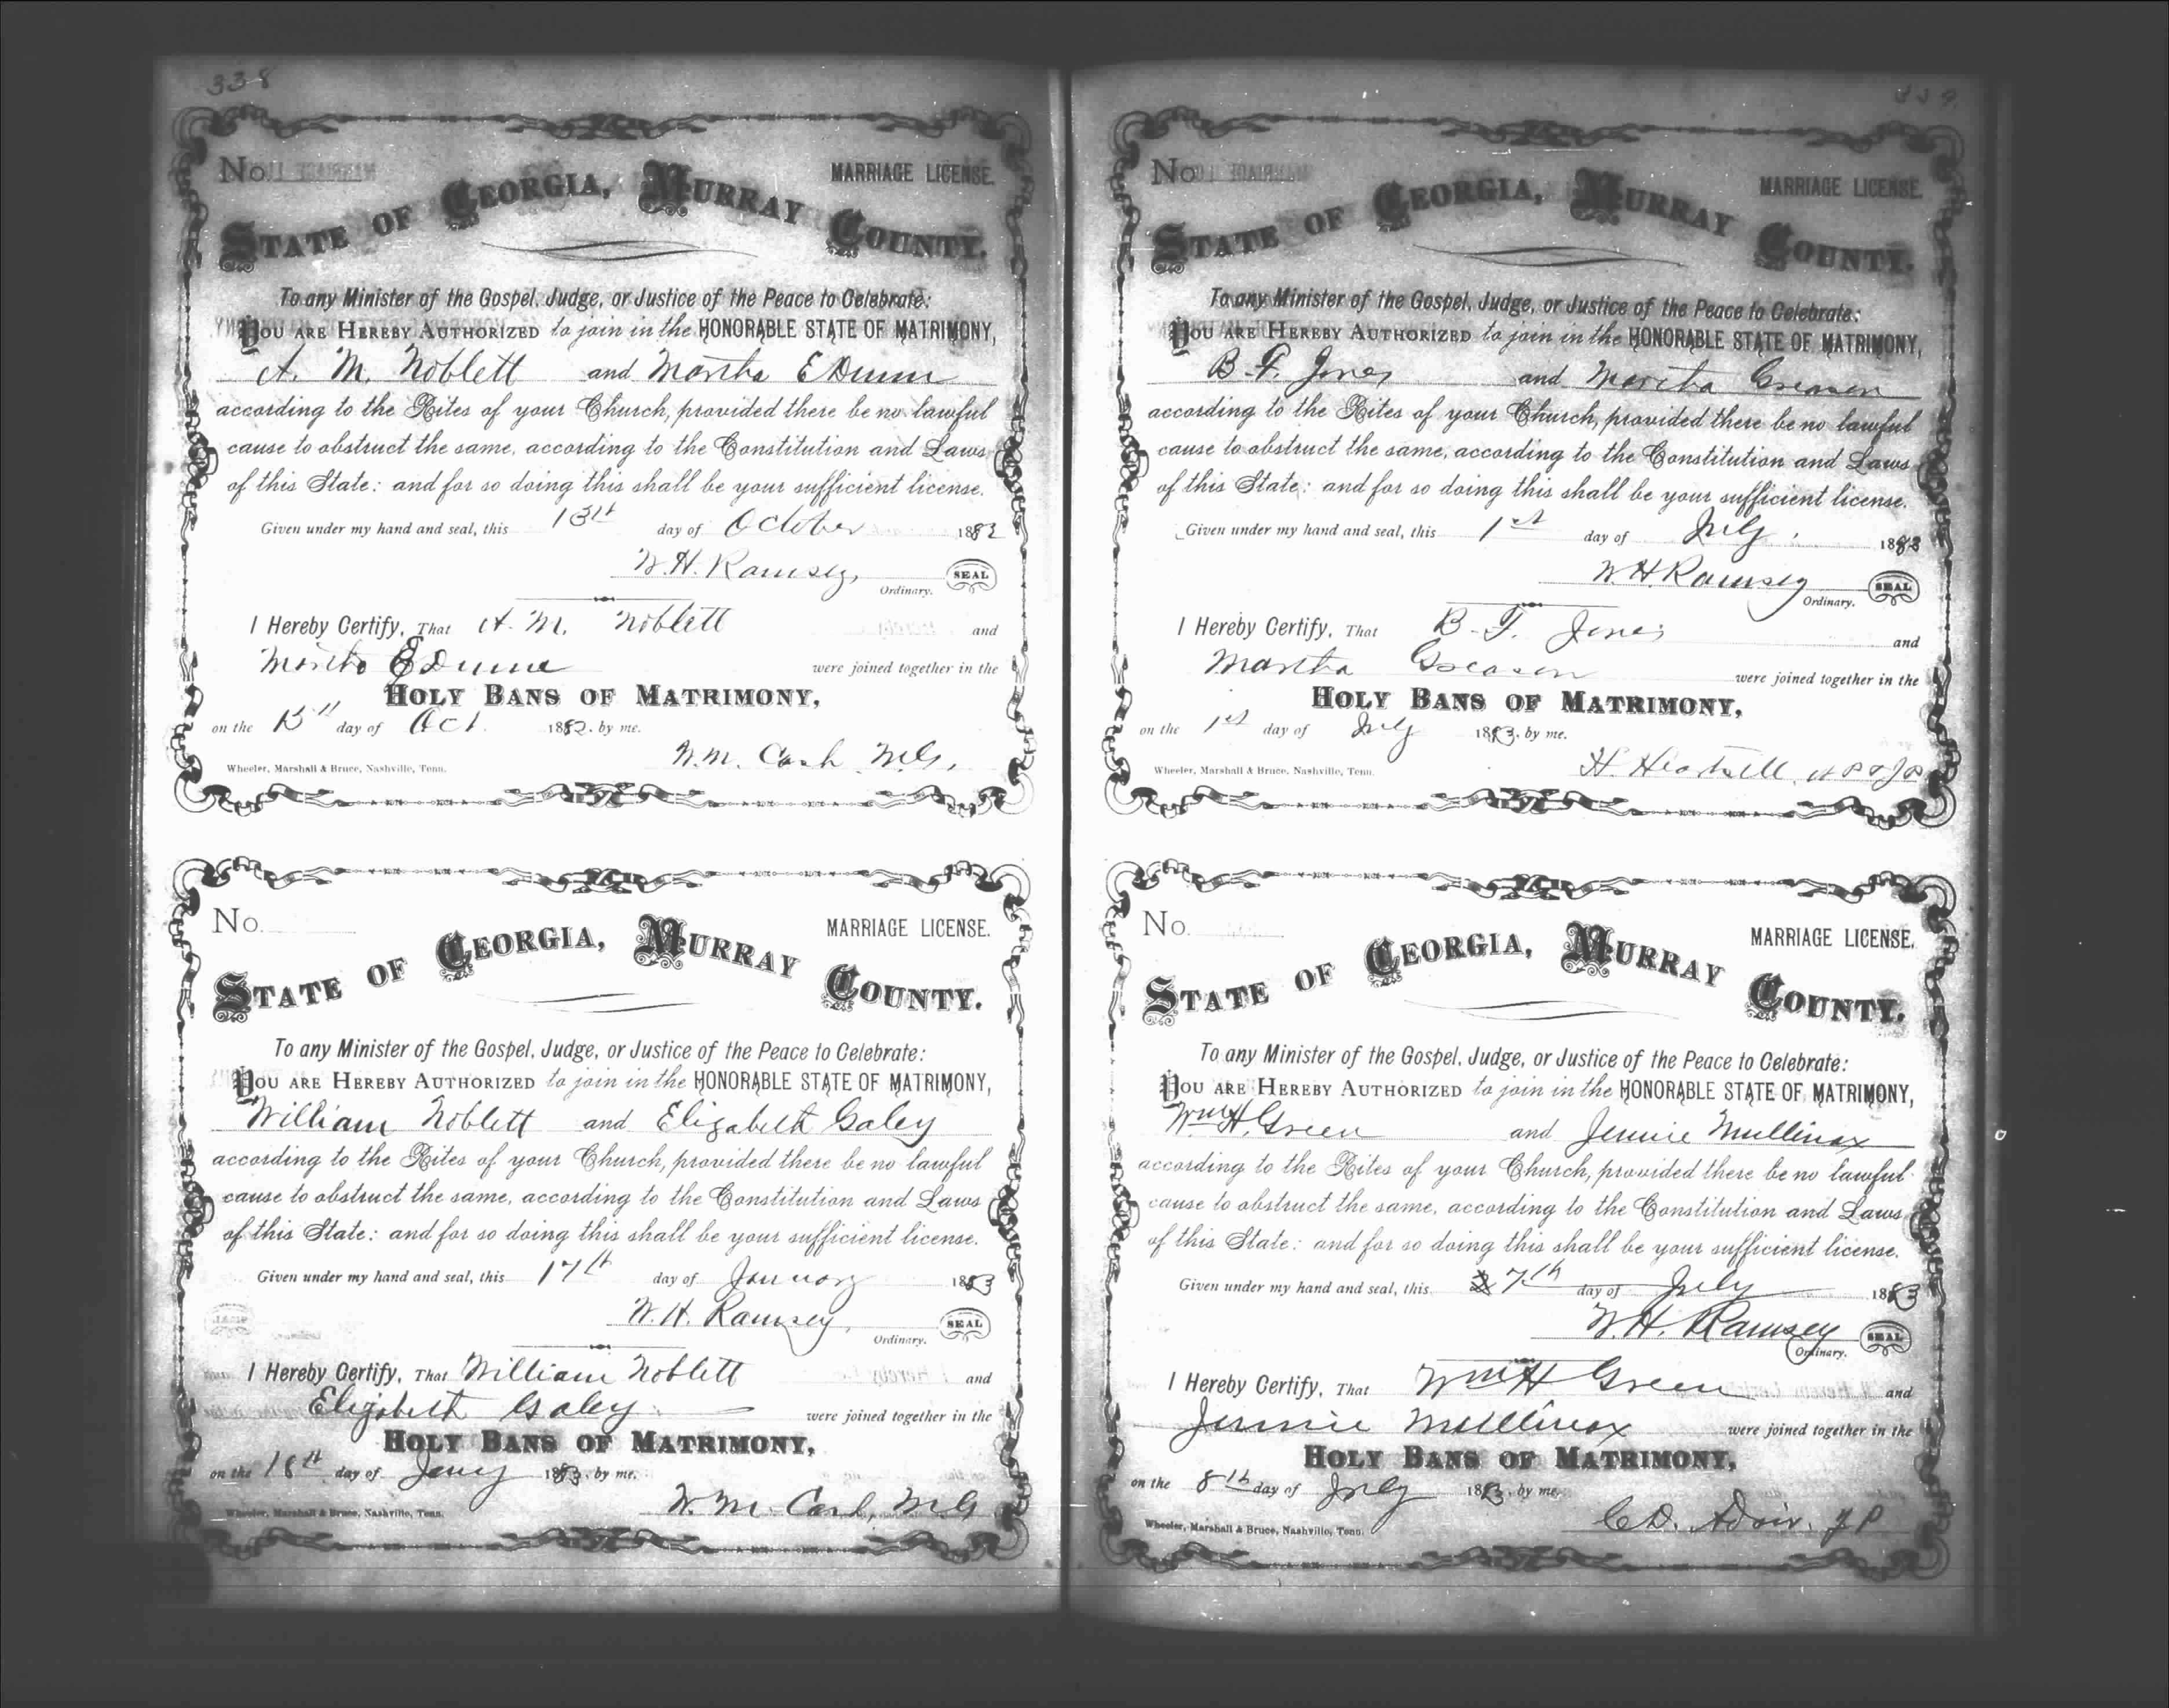 338
No. MARRIAGE LICENSE.
STATE OF GEORGIA, MURRAY COUNTY.
To any Minister of the Gospel, Judge, or Justice of the Peace to Celebrate:
YOU ARE HEREBY AUTHORIZED to join in the HONORABLE STATE OF MATRIMONY,
A. M. Noblett and Martha E Dunn
according to the Rites of your Church, provided there be no lawful
cause to obstruct the same, according to the Constitution and Laws
of this State: and for so doing this shall be your sufficient license.
Given under my hand and seal, this 13th day of October 1882
W. H. Ramsey, SEAL
Ordinary.
I Hereby Certify, That A. M. Noblett and
Martha E Dunn were joined together in the
HOLY BANS OF MATRIMONY,
on the 15th day of Oct. 1882. by me.
W. M. Cash M.G.
Wheeler, Marshall & Bruce, Nashville, Tenn.
No. MARRIAGE LICENSE.
STATE OF GEORGIA, MURRAY COUNTY.
To any Minister of the Gospel, Judge, or Justice of the Peace to Celebrate:
YOU ARE HEREBY AUTHORIZED to join in the HONORABLE STATE OF MATRIMONY,
William Noblett and Elizabeth Galey
according to the Rites of your Church, provided there be no lawful
cause to obstruct the same, according to the Constitution and Laws
of this State: and for so doing this shall be your sufficient license.
Given under my hand and seal, this 17th day of January 1883
W. H. Ramsey, SEAL
Ordinary.
I Hereby Certify, That William Noblett and
Elizabeth Galey were joined together in the
HOLY BANS OF MATRIMONY,
on the 18th day of Jany 1883. by me.
W. M. Cash, M G
Wheeler, Marshall & Bruce, Nashville, Tenn.
339
No. MARRIAGE LICENSE.
STATE OF GEORGIA, MURRAY COUNTY.
To any Minister of the Gospel, Judge, or Justice of the Peace to Celebrate:
YOU ARE HEREBY AUTHORIZED to join in the HONORABLE STATE OF MATRIMONY,
B. F. Jones and Martha
according to the Rites of your Church, provided there be no lawful
cause to obstruct the same, according to the Constitution and Laws
of this State: and for so doing this shall be your sufficient license.
Given under my hand and seal, this 1st day of July 1883
W. H. Ramsey SEAL
Ordinary.
I Hereby Certify, That B. F. Jones and
Martha were joined together in the
HOLY BANS OF MATRIMONY,
on the 1st day of July 1883. by me.
H.
Wheeler, Marshall & Bruce, Nashville, Tenn.
No. MARRIAGE LICENSE.
STATE OF GEORGIA, MURRAY COUNTY.
To any Minister of the Gospel, Judge, or Justice of the Peace to Celebrate:
YOU ARE HEREBY AUTHORIZED to join in the HONORABLE STATE OF MATRIMONY,
Wm H. Green and Jennie Mullinax
according to the Rites of your Church, provided there be no lawful
cause to obstruct the same, according to the Constitution and Laws
of this State: and for so doing this shall be your sufficient license.
Given under my hand and seal, this 7th day of July 1883
W. H. Ramsey SEAL
Ordinary.
I Hereby Certify, That Wm H Green and
Jennie Mullinax were joined together in the
HOLY BANS OF MATRIMONY,
on the 8th day of July 1883. by me.
C. D. Adair. J P
Wheeler, Marshall & Bruce, Nashville, Tenn.